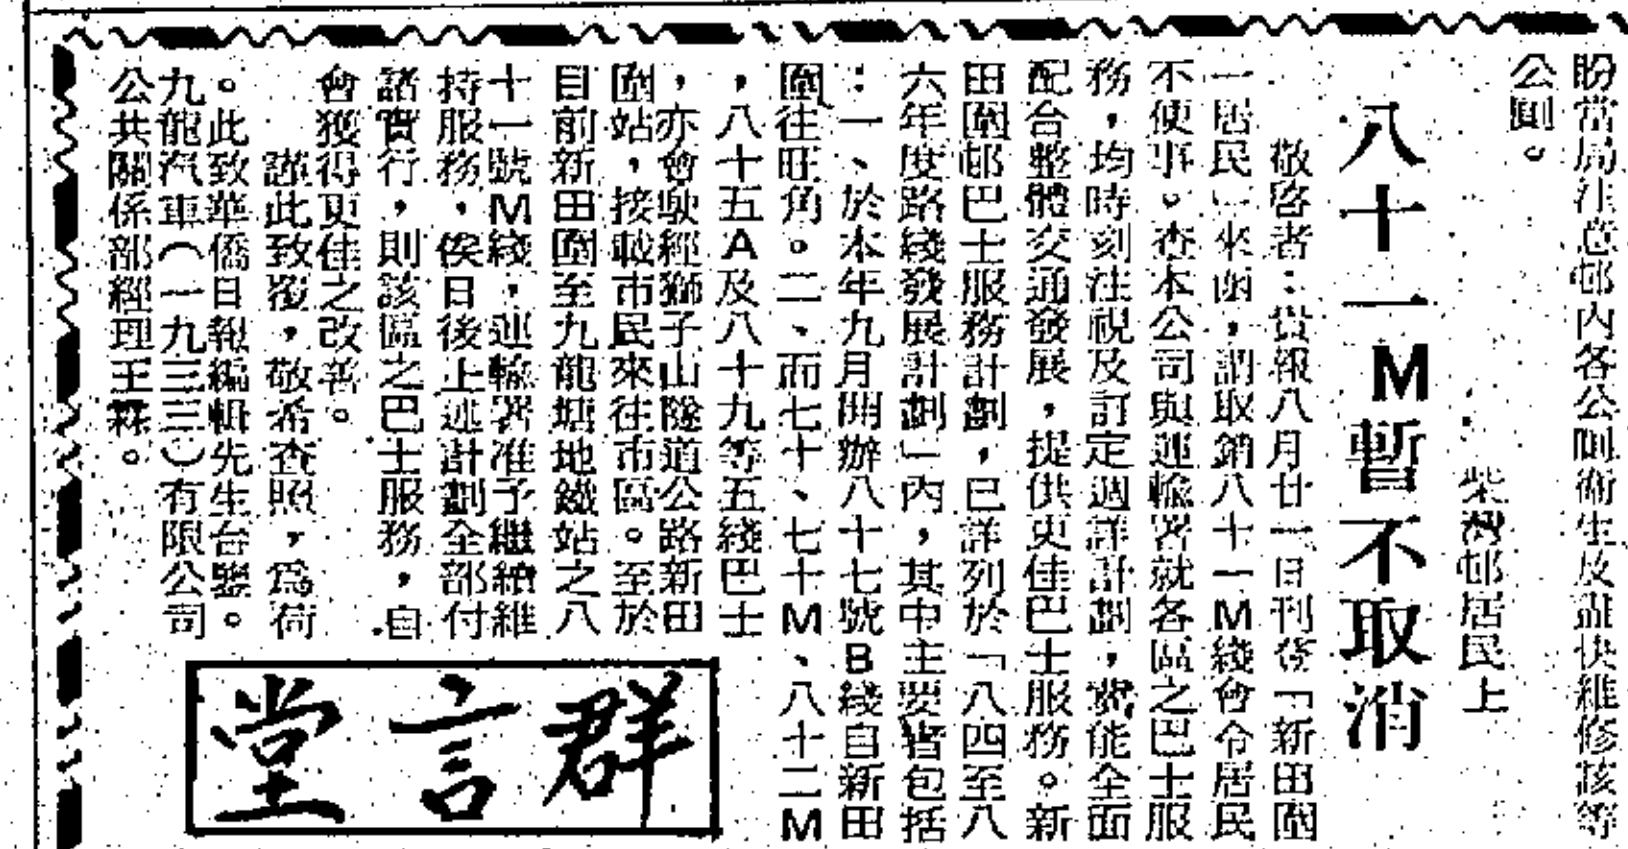 盼當局注意邨內各公廁衛生及盡快維修該等
公廁。
柴灣邨居民上
八十一M暫不取消
敬啓者：貴報八月廿一日刊登「新田圍
一居民」來函，謂取銷八十一M綫會令居民
不便事。查本公司與運輸署就各區之巴士服
務，均時刻注視及訂定週詳計劃，冀能全面
配合整體交通發展，提供更佳巴士服務。新
田圍邨巴士服務計劃，已詳列於「八四至八
六年度路綫發展計劃」內，其中主要者包括
：一、於本年九月開辦八十七號B綫自新田
圍往旺角。二、而七十、七十M、八十二M
，八十五A及八十九等五綫巴士
，亦會駛經獅子山隧道公路新田
圍站，接載市民來往市區。至於
目前新田圍至九龍塘地鐵站之八
十一號M綫，運輸署准予繼續維
持服務，俟日後上述計劃全部付
諸實行，則該區之巴士服務，自
會獲得更佳之改善。
謹此致覆，敬希查照，爲荷
。此致華僑日報編輯先生台鑒。
九龍汽車（一九三三）有限公司
公共關係部經理王霖。
群言堂